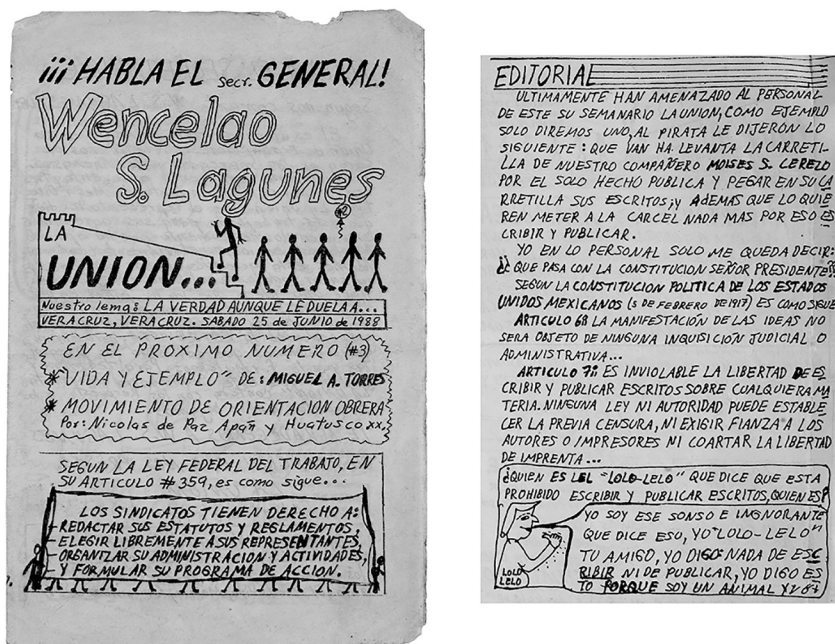 ¡¡¡ HABLA EL secr. GENERAL!
Wencelao
S. Lagunes
#2
LA
UNION...
Nuestro lema: LA VERDAD AUNQUE LE DUELA A...
VERACRUZ, VERACRUZ. SABADO 25 de JUNIO de 1988
EN EL PROXIMO NUMERO (#3)
* "VIDA Y EJEMPLO" DE: MIGUEL A. TORRES
* MOVIMIENTO DE ORIENTACION OBRERA
Por: Nicolas de Paz Apañ y Huatusco xx,
SEGUN LA LEY FEDERAL DEL TRABAJO, EN
SU ARTICULO # 359, es como sigue...
LOS SINDICATOS TIENEN DERECHO A:
- REDACTAR SUS ESTATUTOS Y REGLAMENTOS,
- ELEGIR LIBREMENTE A SUS REPRESENTANTES,
- ORGANIZAR SU ADMINISTRACION Y ACTIVIDADES,
- Y FORMULAR SU PROGRAMA DE ACCION.
EDITORIAL
ULTIMAMENTE HAN AMENAZADO AL PERSONAL
DE ESTE SU SEMANARIO LA UNION, COMO EJEMPLO
SOLO DIREMOS UNO, AL PIRATA LE DIJERON LO
SIGUIENTE: QUE VAN HA LEVANTA LA CARRETI-
LLA DE NUESTRO COMPAÑERO MOISES S. CEREZO
POR EL SOLO HECHO PUBLICA Y PEGAR EN SU CA
RRETILLA SUS ESCRITOS; Y ADEMAS QUE LO QUIE
REN METER A LA CARCEL NADA MAS POR ESO ES
CRIBIR Y PUBLICAR.
YO EN LO PERSONAL SOLO ME QUEDA DECIR:
¿¿ QUE PASA CON LA CONSTITUCION SEÑOR PRESIDENTE??
SEGUN LA CONSTITUCION POLITICA DE LOS ESTADOS
UNIDOS MEXICANOS (5 DE FEBRERO DE 1917) ES COMO SIGUE
ARTICULO 6º LA MANIFESTACIÓN DE LAS IDEAS NO
SERA OBJETO DE NINGUNA INQUISICIÓN JUDICIAL O
ADMINISTRATIVA...
ARTICULO 7º: ES INVIOLABLE LA LIBERTAD DE ES
CRIBIR Y PUBLICAR ESCRITOS SOBRE CUALQUIERA MA
TERIA. NINGUNA LEY NI AUTORIDAD PUEDE ESTABLE
CER LA PREVIA CENSURA, NI EXIGIR FIANZA A LOS
AUTORES O IMPRESORES NI COARTAR LA LIBERTAD
DE IMPRENTA...
¿QUIEN ES LEL "LOLO-LELO" QUE DICE QUE ESTA
PROHIBIDO ESCRIBIR Y PUBLICAR ESCRITOS, QUIEN ES?
YO SOY ESE SONSO E INGNORANTE
QUE DICE ESO, YO "LOLO-LELO"
TU AMIGO, YO DIGO: NADA DE ESC
RIBIR NI DE PUBLICAR, YO DIGO ES
TO PORQUE SOY UN ANIMAL
LOLO
LELO